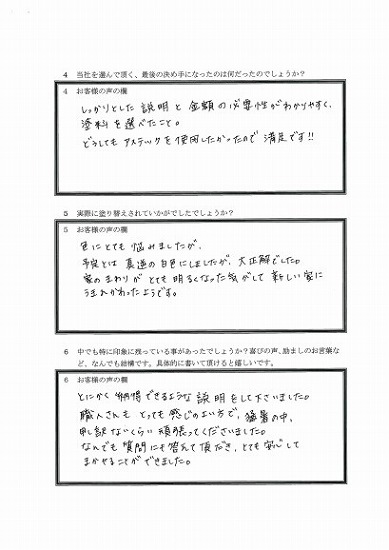 4 当社を選んで頂く、最後の決め手になったのは何だったのでしょうか?
4 お客様の声の欄
しっかりとした説明と金額の必要性がわかりやすく、
塗料を選べたこと。
どうしてもアステックを使用したかったので満足です!!
5 実際に塗り替えされていかがでしたでしょうか?
5 お客様の声の欄
色にとても悩みましたが、
予定とは真逆の白色にしましたが、大正解でした。
家のまわりがとても明るくなった気がして新しい家に
うまれかわったようです。
6 中でも特に印象に残っている事があったでしょうか?喜びの声、励ましのお言葉な
ど、なんでも結構です。具体的に書いて頂けると嬉しいです。
6 お客様の声の欄
とにかく納得できるような説明をして下さいました。
職人さんもとっても感じのよい方で、猛暑の中、
申し訳ないくらい頑張ってくださいました。
なんでも質問にも答えて頂だき、とても安心して
まかせることができました。